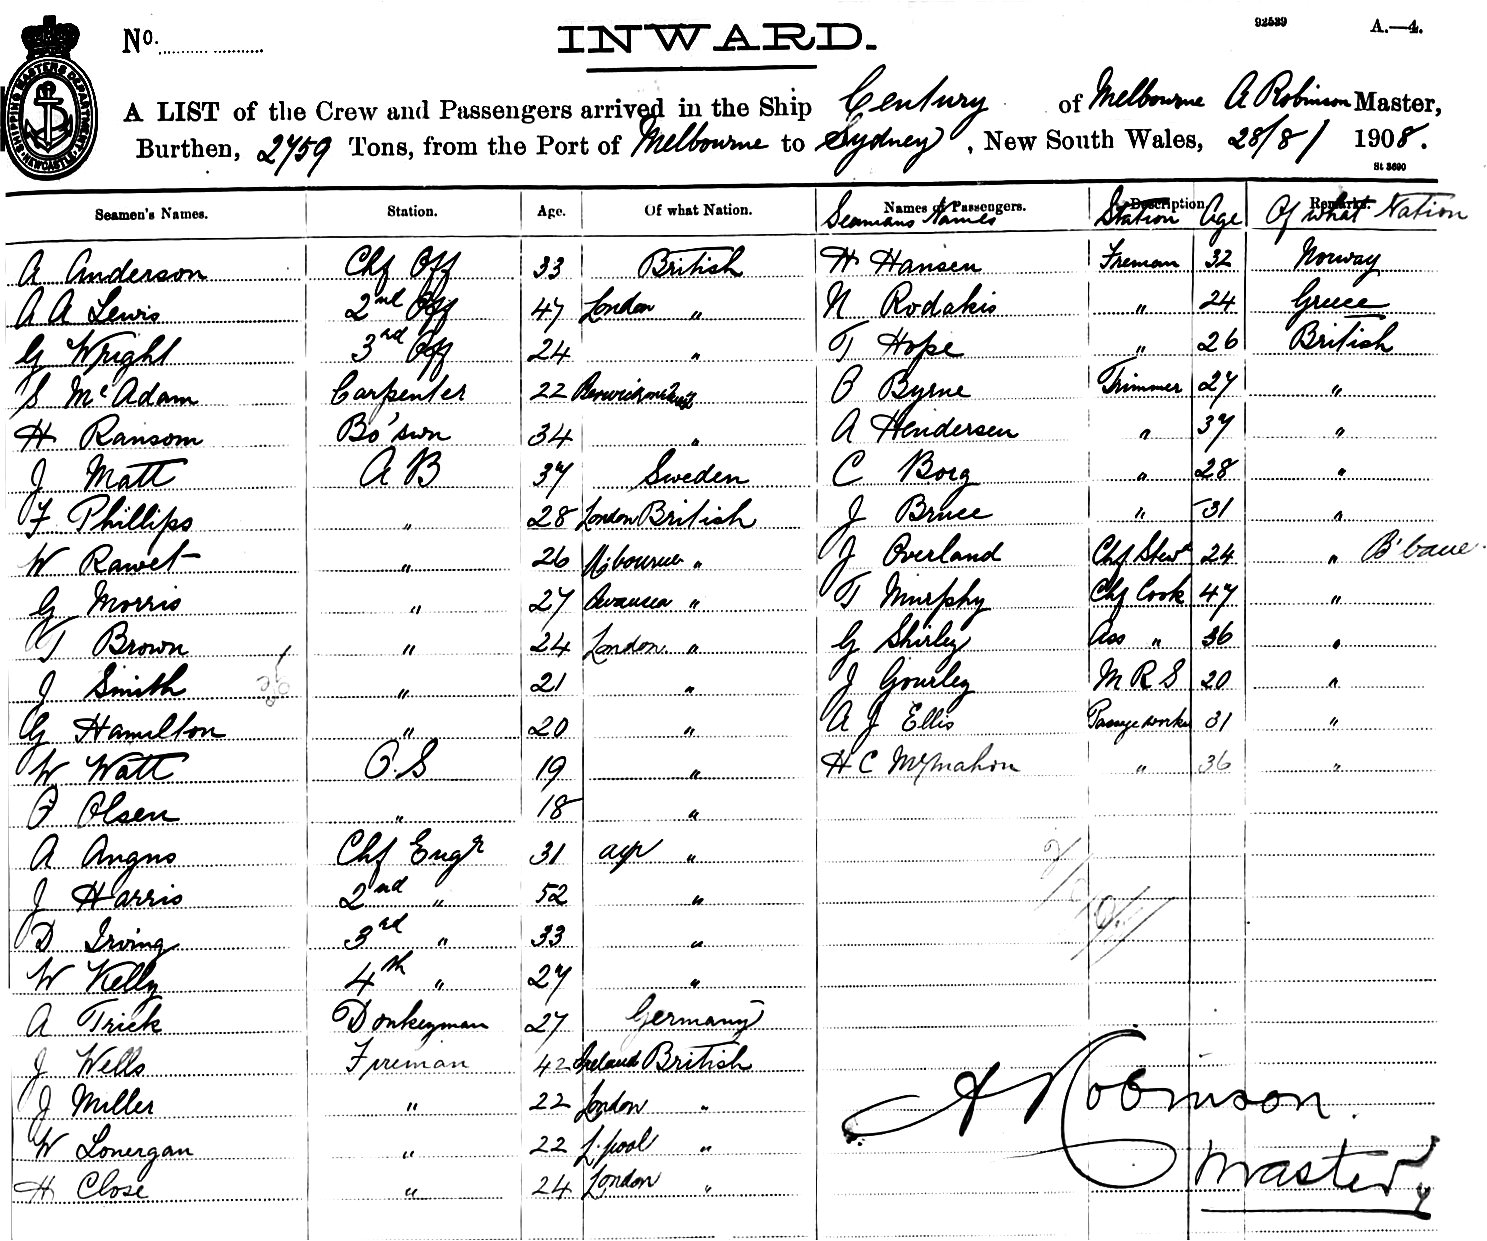 No.
INWARD.
92539
A.—4.
SHIPPING MASTERS DEPARTMENT NEWCASTLE
A LIST of the Crew and Passengers arrived in the Ship Century of Melbourne A Robinson Master,
Burthen, 2759 Tons, from the Port of Melbourne to Sydney, New South Wales, 28/8/ 1908.
St 3690
Seamen's Names. Station. Age. Of what Nation. Names of Passengers. Description Remarks.
Seamans Names Station Age Of what Nation
A Anderson Chf Off 33 British H Hansen Freman 32 Norway
A A Lewis 2nd Off 47 London " N Rodakis " 24 Greece
G Wright 3rd Off 24 " T Hope " 26 British
S McAdam Carpenter 22 " O Byrne Trimmer 27 "
H Ransom Bo'swn 34 " A Hendersen " 37 "
J Matt A B 37 Sweden C Borg " 28 "
F Phillips " 28 London British J Bruce " 31 "
W Rawet " 26 M'bourne " J Overland Chf Stewd 24 " B'bane
G Morris " 27 Swansea " T Murphy Chf Cook 47 "
T Brown " 24 London " G Shirley Ass " 36 "
J Smith " 21 " J Gourley M R S 20 "
G Hamilton " 20 " A J Ellis 31 "
W Watt O.S 19 " H C McMahon " 36 "
O Olsen " 18 "
A Angus Chf Engr 31 ayr "
J Harris 2nd " 52 "
D Irving 3rd " 33 "
W Kelly 4th " 27 "
A Trick Donkeyman 27 Germany
J Wells Fireman 42 Ireland British
J Miller " 22 London "
W Lonergan " 22 L'pool "
H Close " 24 London "
A Robinson.
Master